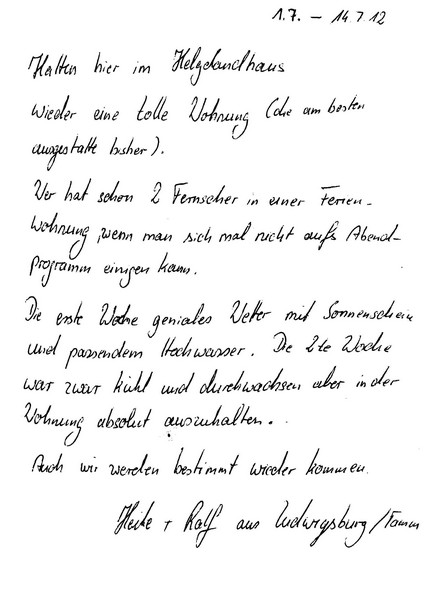 1.7. – 14.7.12
Hatten hier im Helgolandhaus
wieder eine tolle Wohnung (die am besten
ausgestatte bisher).
Wer hat schon 2 Fernseher in einer Ferien-
wohnung, wenn man sich mal nicht aufs Abend-
programm einigen kann.
Die erste Woche geniales Wetter mit Sonnenschein
und passendem Hochwasser. Die 2te Woche
war zwar kühl und durchwachsen aber in der
Wohnung absolut auszuhalten.
Auch wir werden bestimmt wieder kommen.
Heike + Ralf aus Ludwigsburg/Tamm